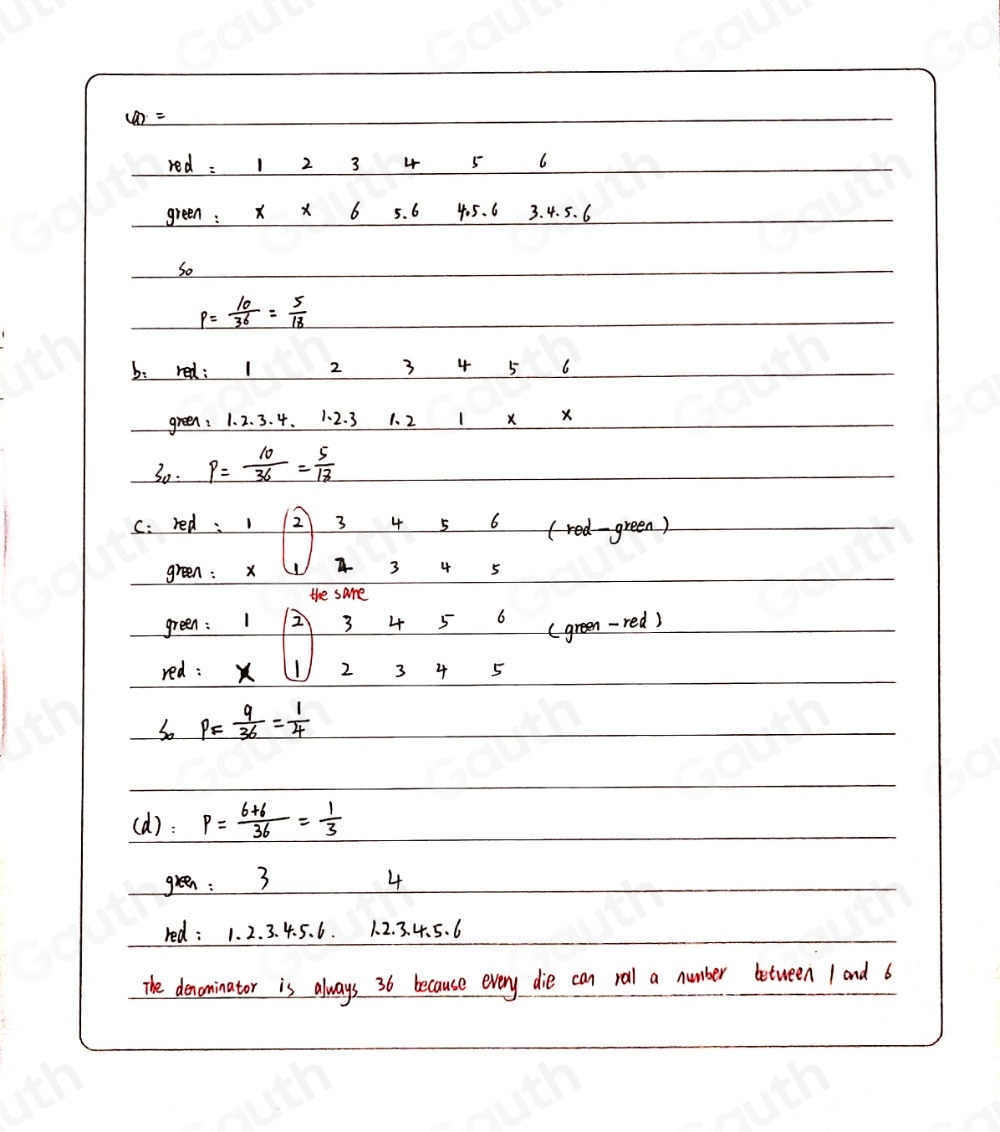 (a) =
red : 1 2 3 4 5 6
green : x x 6 5.6 4.5.6 3.4.5.6
So
P= 10/36 = 5/18
b: red: 1 2 3 4 5 6
green: 1.2.3.4. 1.2.3 1.2 1 x x
So. P= 10/36 = 5/18
C: red : 1 2 3 4 5 6 (red-green)
green : x 1 2 3 4 5
the same
green: 1 2 3 4 5 6 (green-red)
red : x 1 2 3 4 5
So P= 9/36 = 1/4
(d): P= 6+6/36 = 1/3
green : 3 4
red : 1.2.3.4.5.6. 1.2.3.4.5.6
The denominator is always 36 because every die can rall a number between 1 and 6